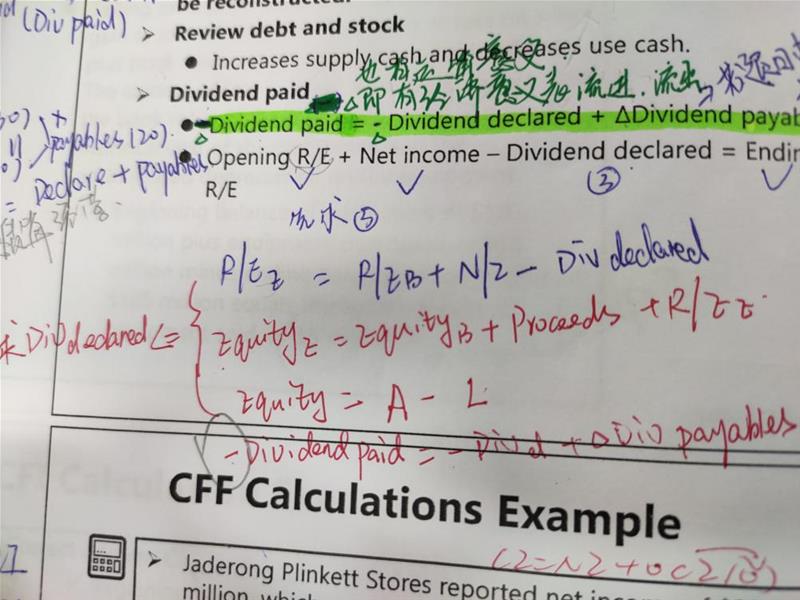 (Div paid)
be reconstructed.
➢ Review debt and stock
● Increases supply cash and decreases use cash.
➢ Dividend paid
● -Dividend paid = - Dividend declared + ΔDividend payab
payables (20).
● Opening R/E + Net income – Dividend declared = Endin
R/E
= Declare + payables
③
所求 ③
R/E_E = R/E_B + N/I - Div declared
求 Div declared
Equity_E = Equity_B + Proceeds + R/E_E.
Equity = A - L
- Dividend paid = - Div d + Δ Div payables
CFF Calculations Example
➢ Jaderong Plinkett Stores reported net inc
million, whic